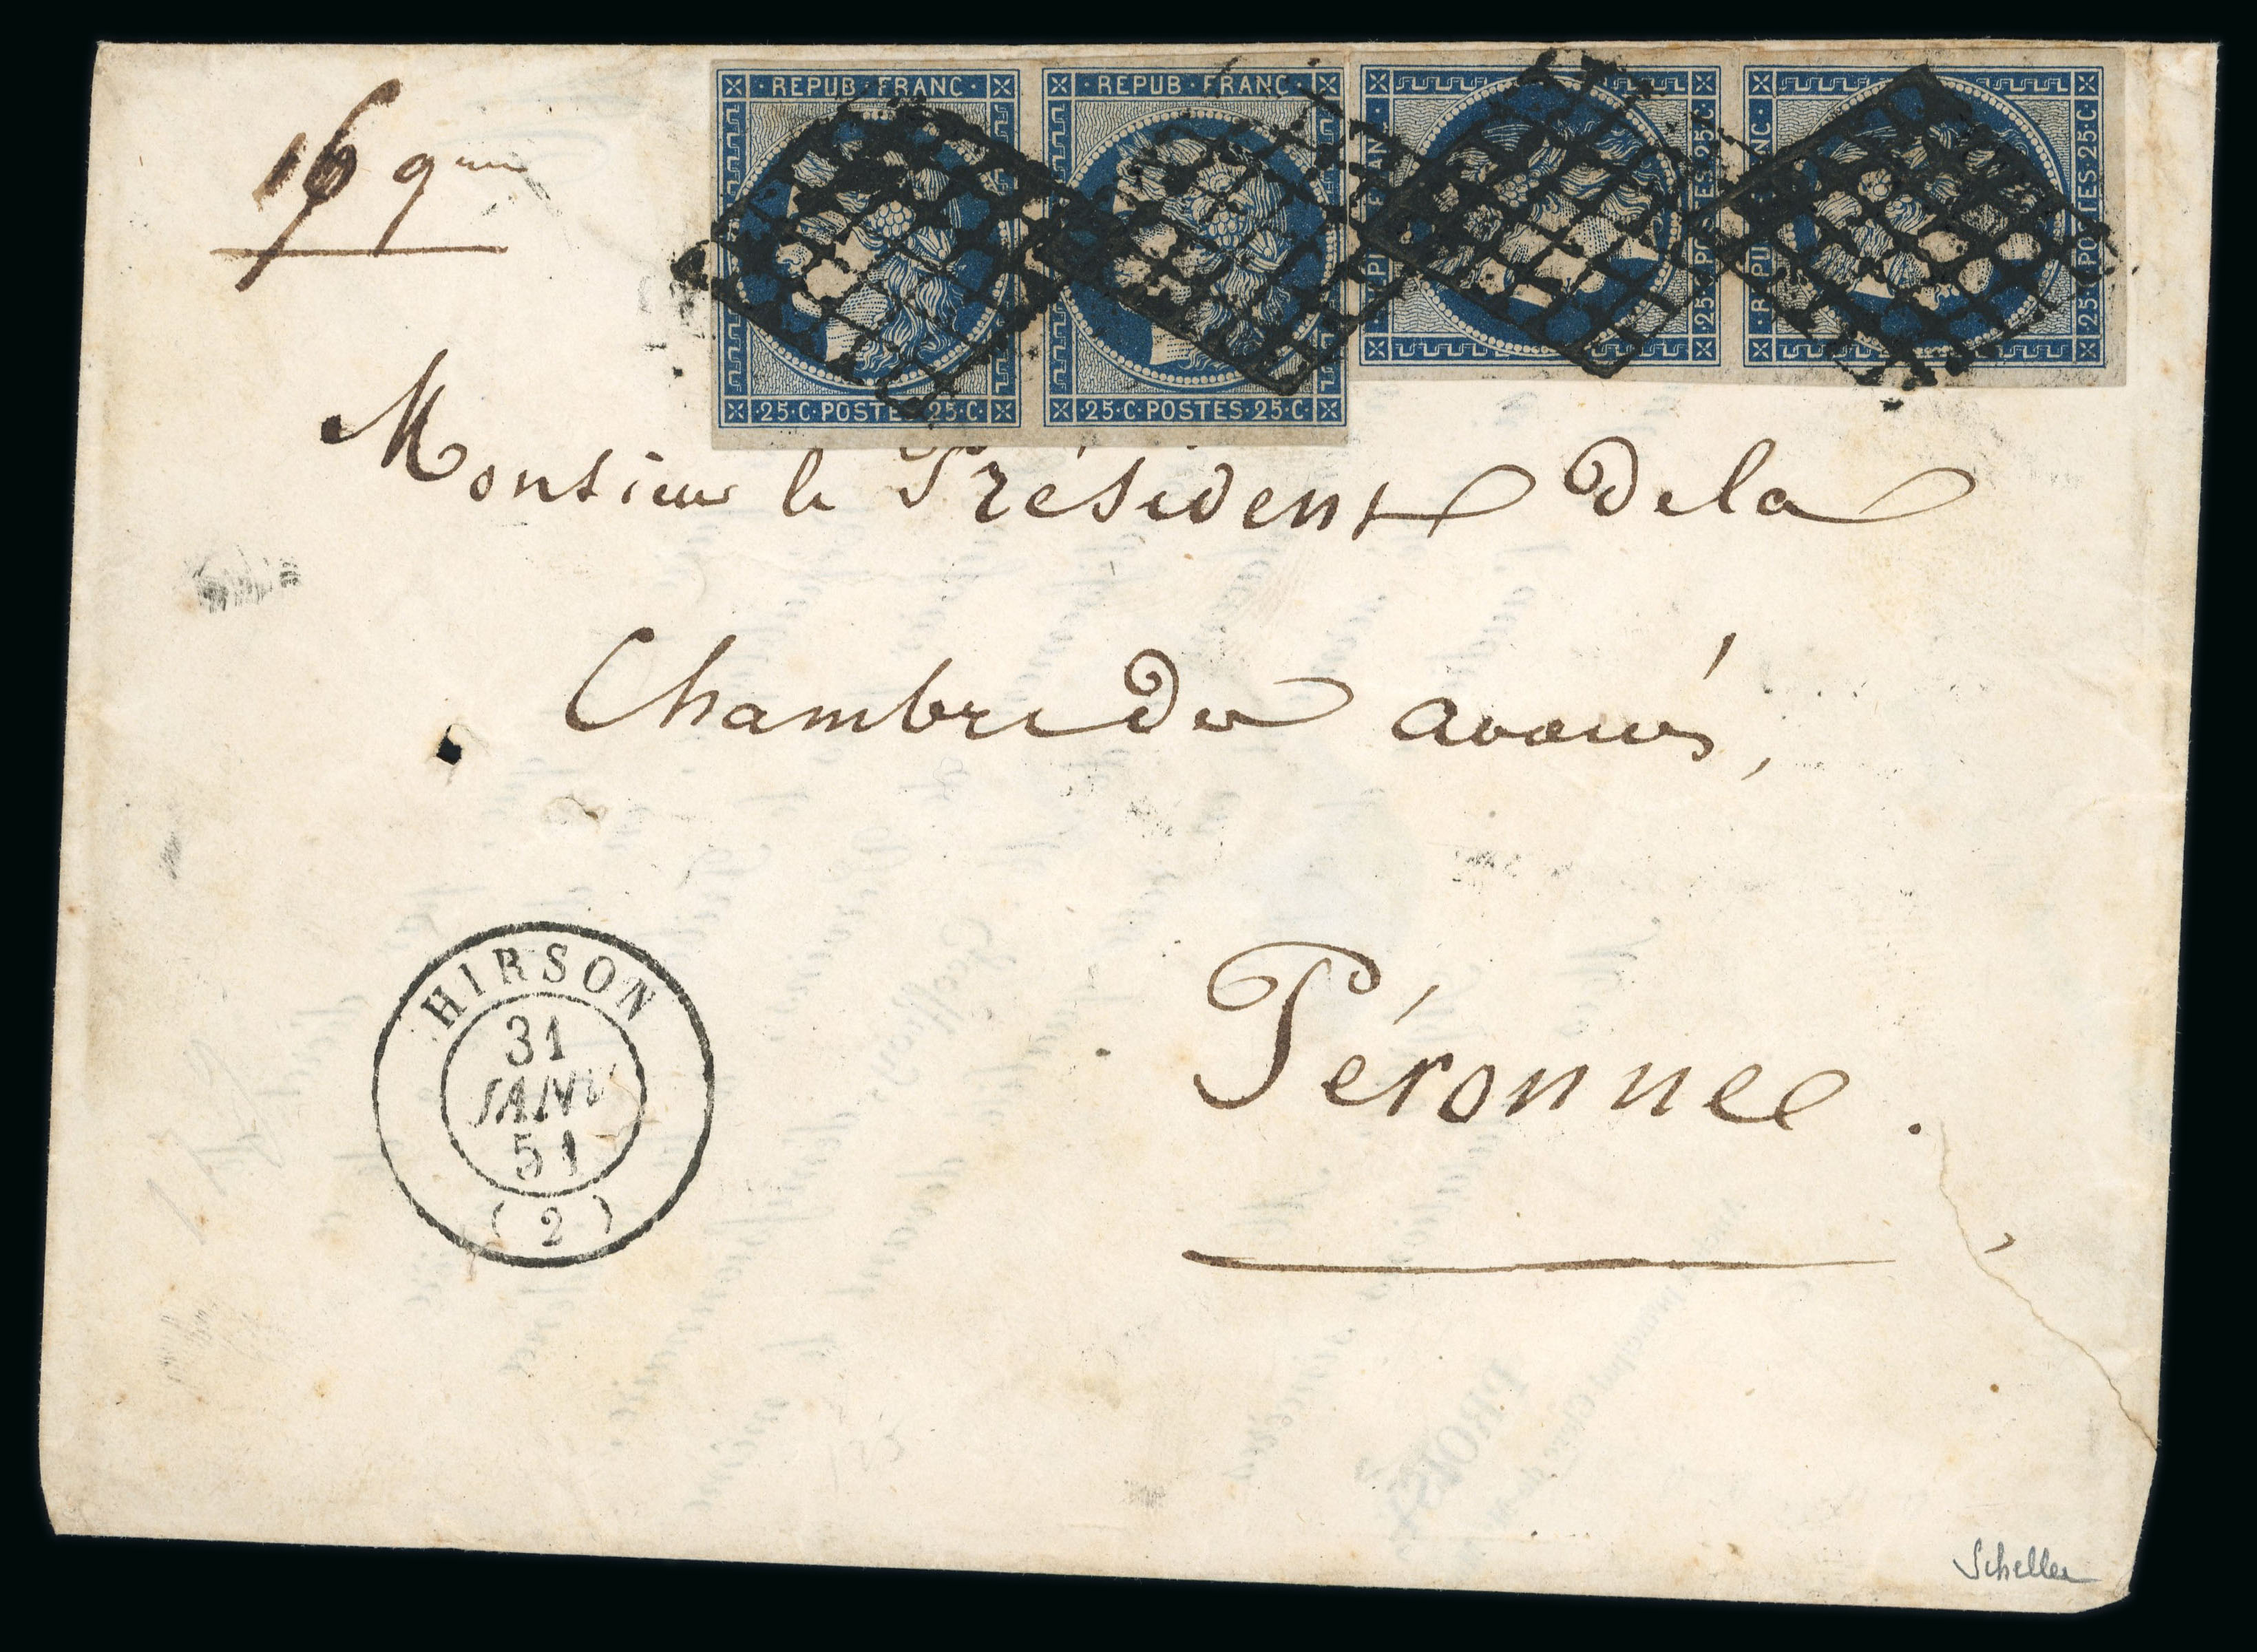 16 g
· REPUB · FRANC · · REPUB · FRANC ·
25·C·POSTES·25·C· ·25·C·POSTES·25·C·
25·C·POSTES·25·C· ·25·C·POSTES·25·C·
Monsieur le Président de la
Chambre des avoués,
Péronne.
HIRSON
31
JANV
51
(2)
Scheller